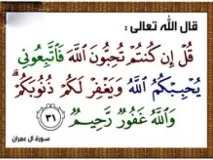 قال الله تعالى :
قُلْ إِن كُنتُمْ تُحِبُّونَ ٱللَّهَ فَٱتَّبِعُونِى
يُحْبِبْكُمُ ٱللَّهُ وَيَغْفِرْ لَكُمْ ذُنُوبَكُمْ ۗ
وَٱللَّهُ غَفُورٌ رَّحِيمٌ ٣١
سورة آل عمران